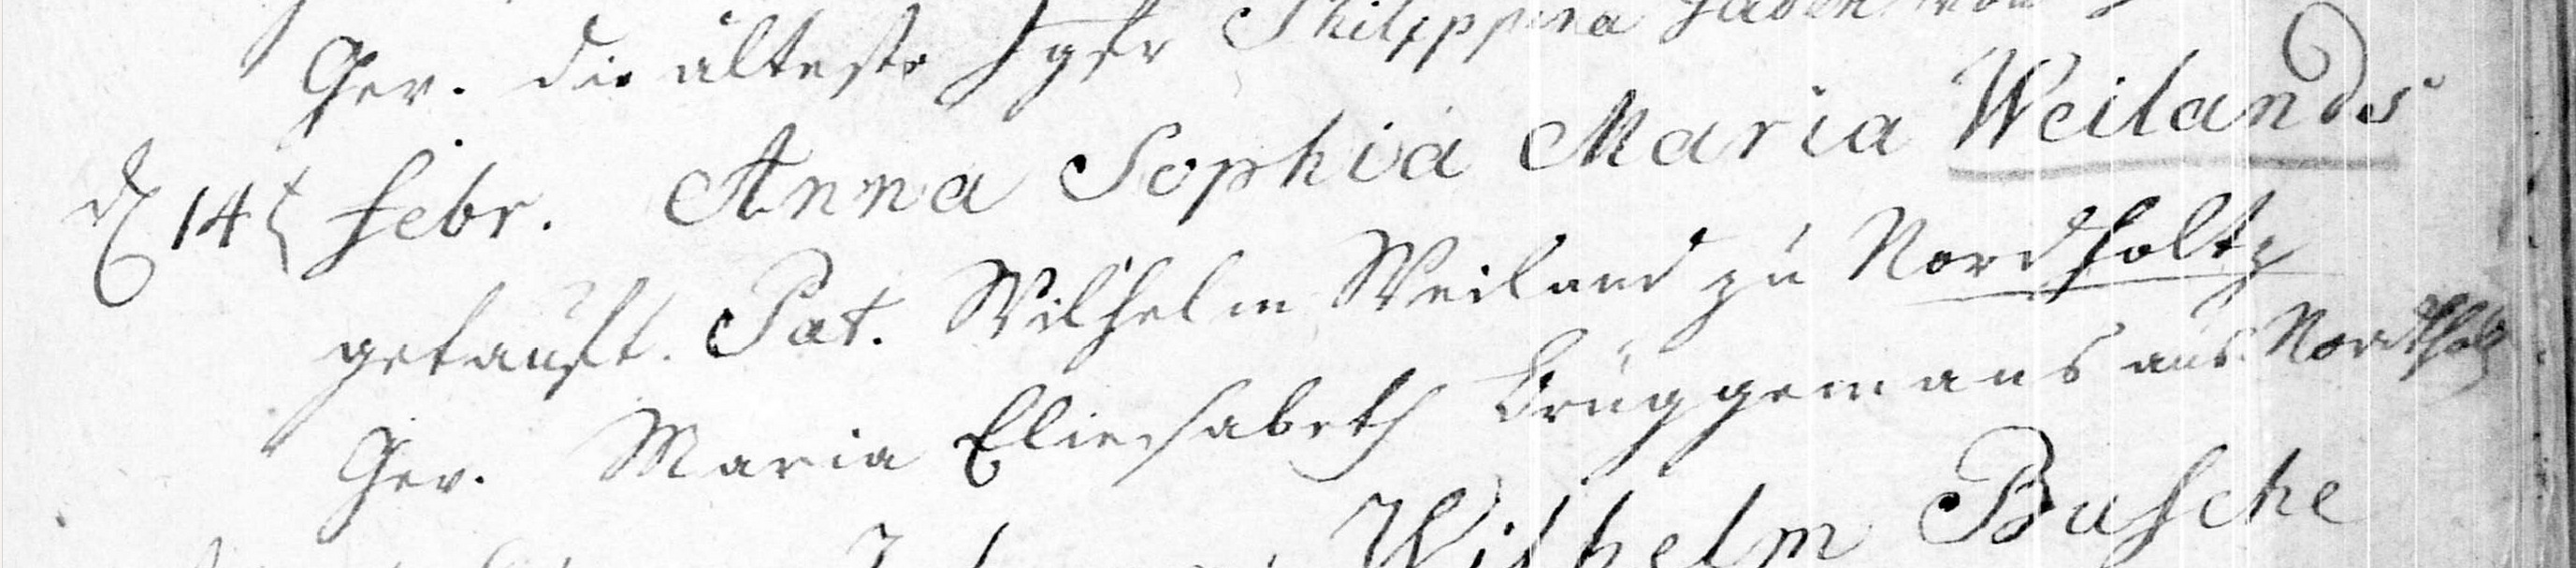 Gev. die älteste Jgfr Philippina
d 14t Febr. Anna Sophia Maria Weilands
getauft. Pat. Wilhelm Weiland zu Nordholtz
Gev. Maria Eliesabeth Brüggemans aus Nordholtz
Wilhelm Busche